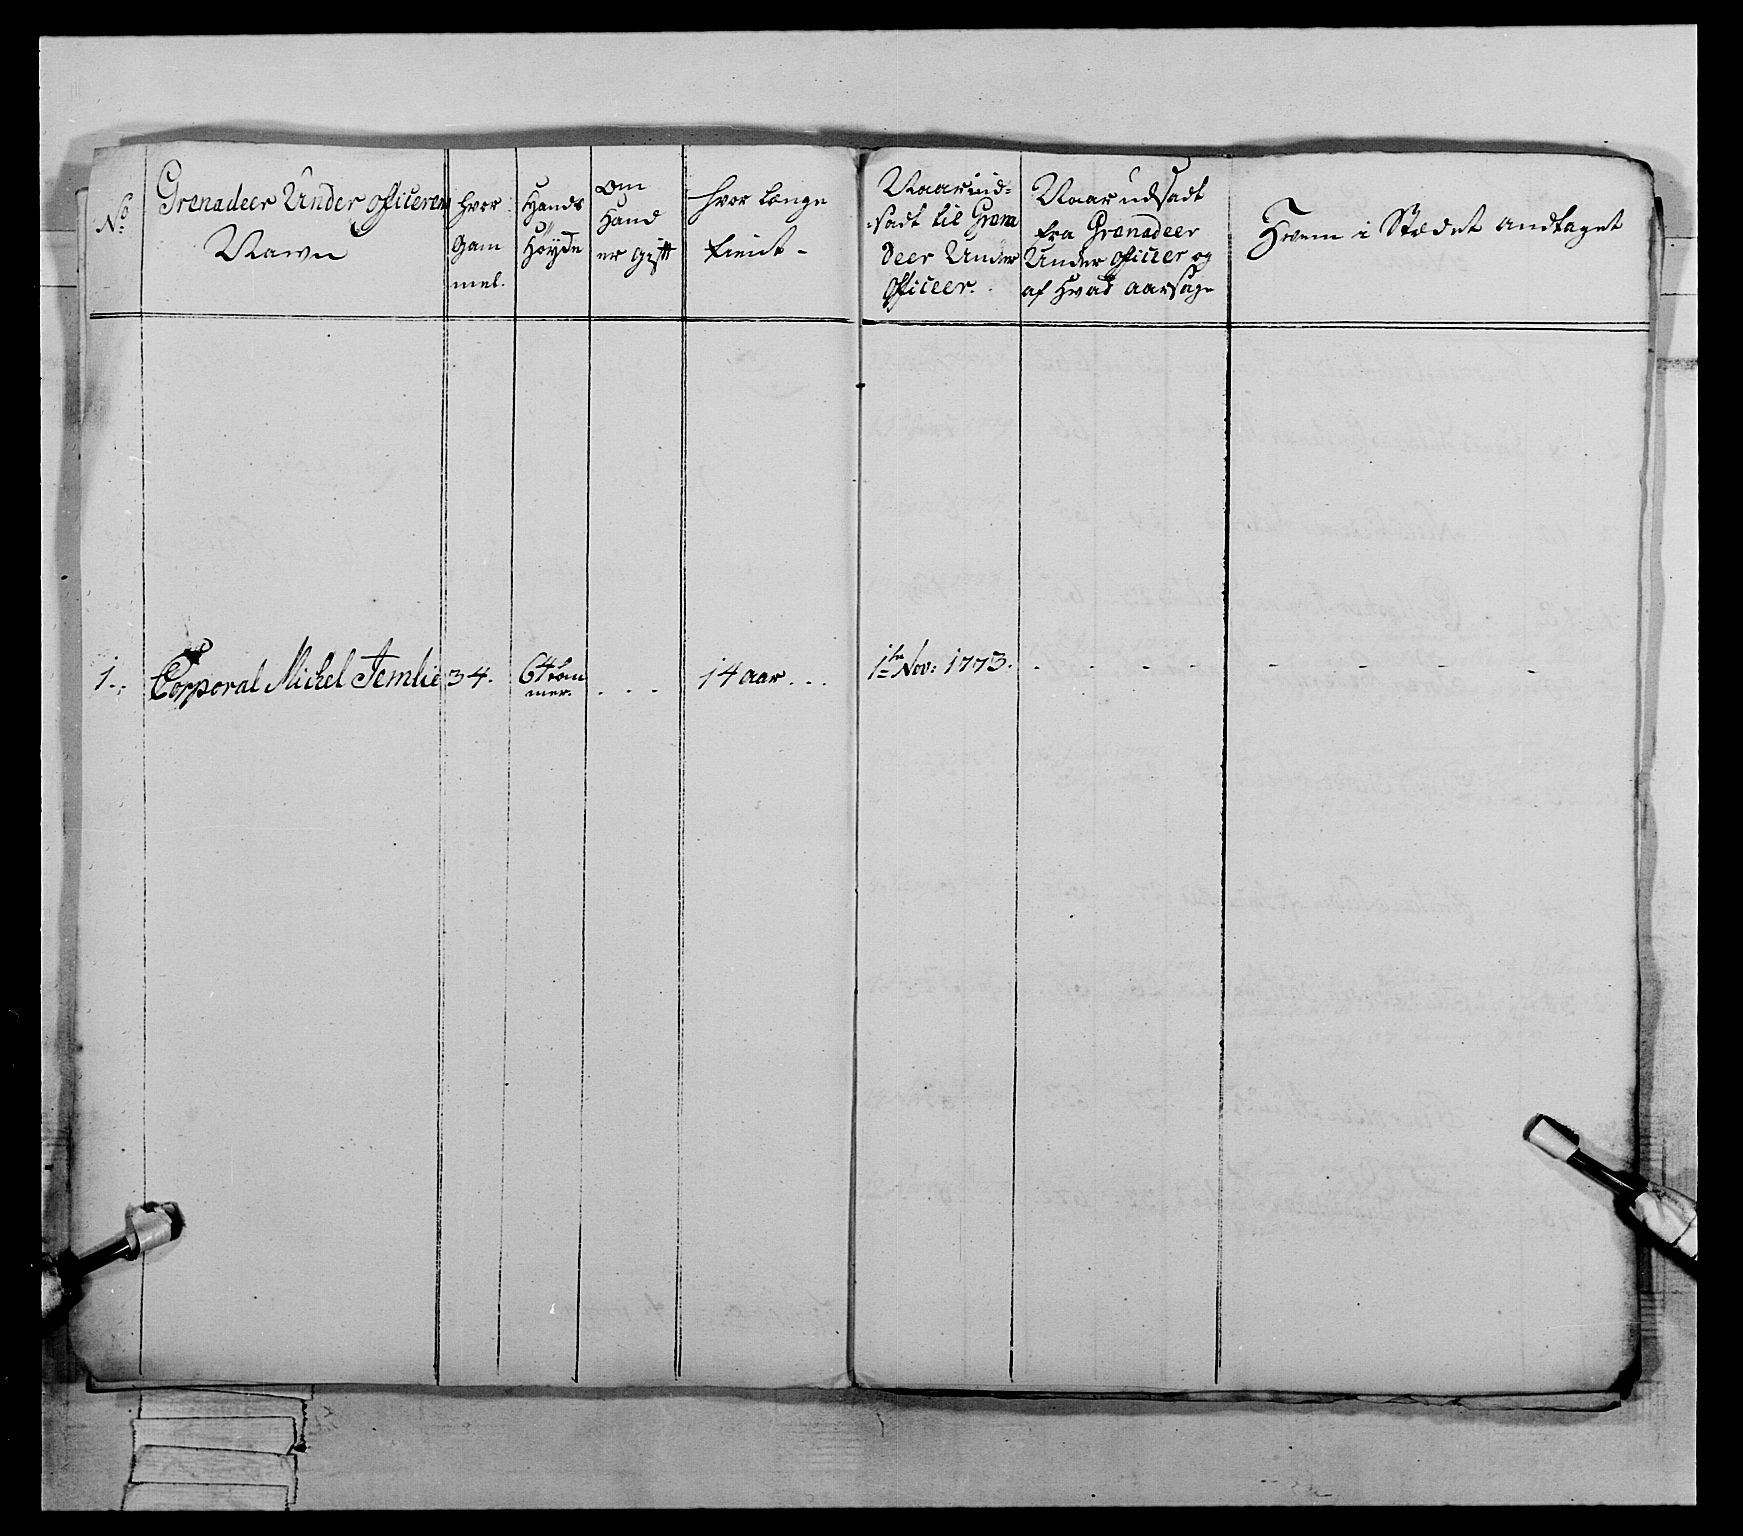 No
Grenadeer Under officerens
Navn
Hvor
Gam
mel.
Hands
Höyde
Om
Hand
er gift
Hvor længe
tient-
Naar ind-
-sadt til Grena
deer Under
officeer.
Naar udsadt
fra Grenadeer
Under officeer og
af Hvad aarsage
Hvem i Stædet andtaget
1.
Corporal Michel Temlie
34.
64 tom
mer.
14 aar
1te Nov: 1773.